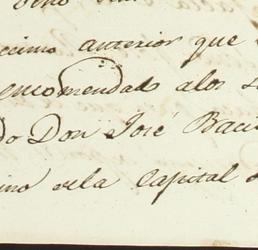 ecimo anterior que
encomendado alos
do Don José Baci
ino dela Capital